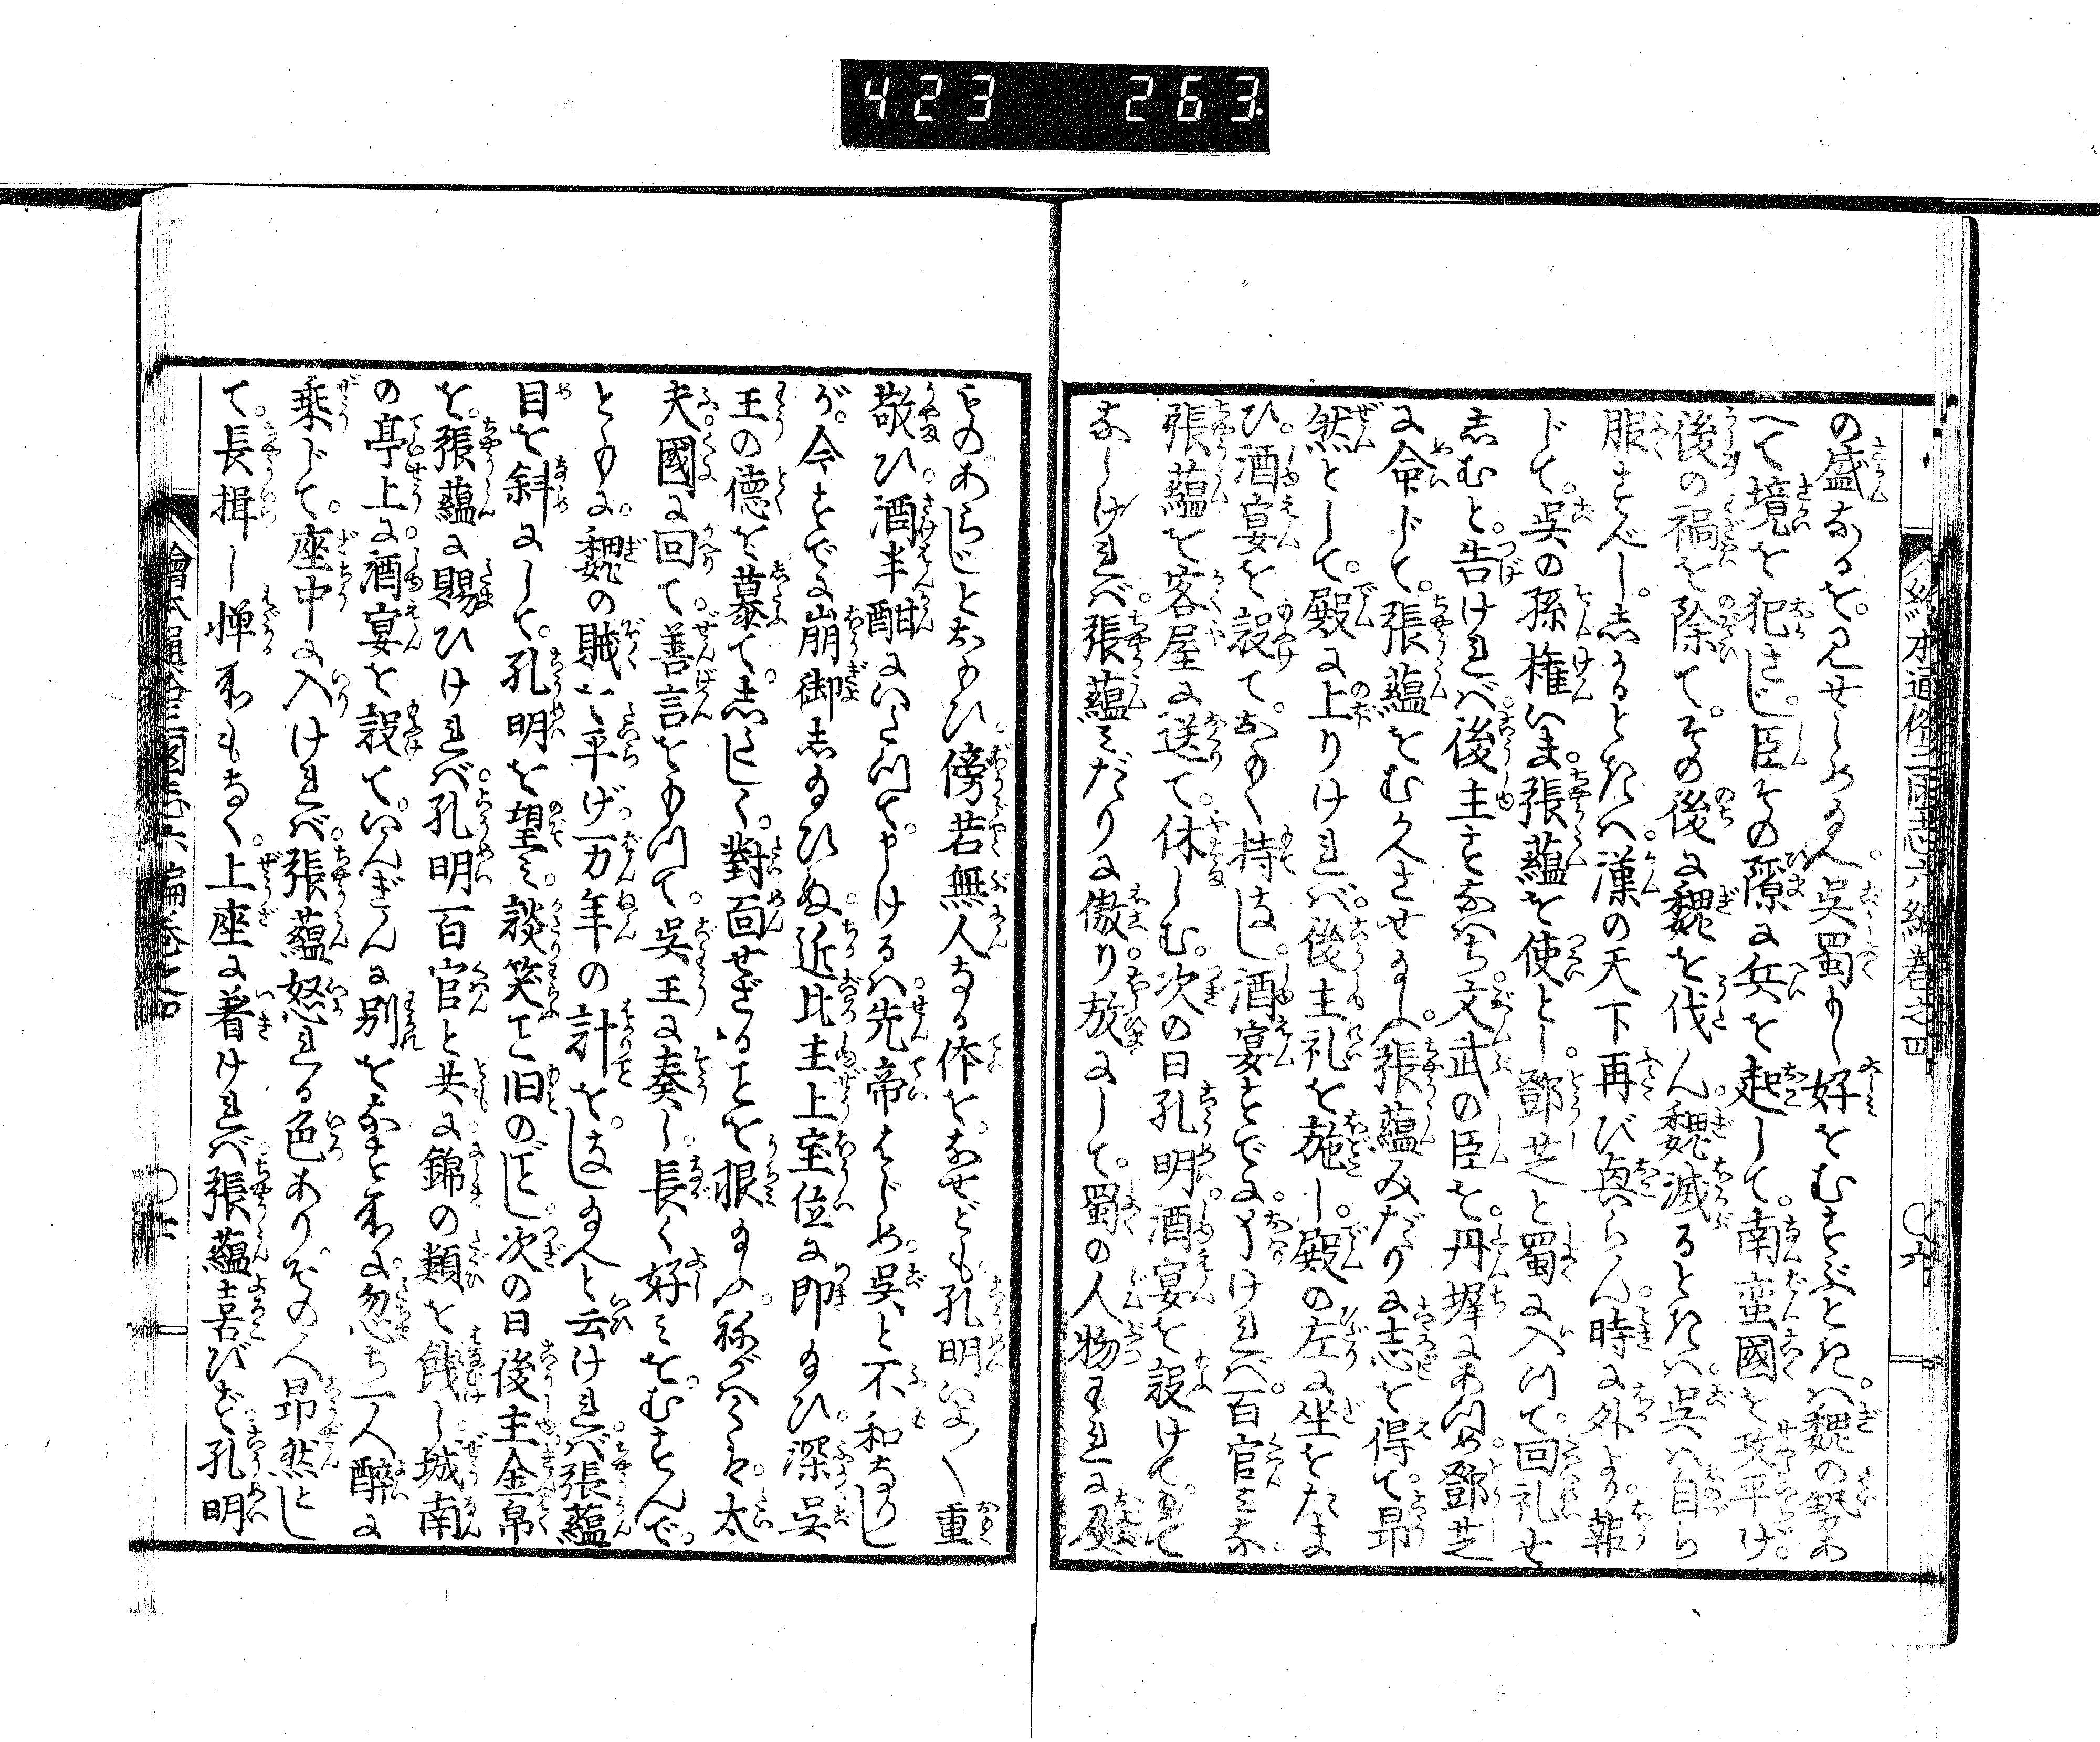 423 263
絵本通俗三国志六編巻之四 〇六
の盛なるを。見せしめ玉へ。呉蜀もし好をむすぶときハ。魏の勢あ
へて境を犯さじ。臣その隙に兵を起して。南蛮國を攻平げ。
後の禍を除て。その後に魏を伐ん。魏滅るときハ。呉ハ自ら
服すべし。志かるときハ。漢の天下再び興らん。時に外より。報
じて。呉の孫権いま。張蘊を使とし。鄧芝と蜀に入つて。回礼せ
志むと。告けれバ。後主すなハち文武の臣を。丹墀にあつめ。鄧芝
に命じて。張蘊をむかへさせ玉へバ。張蘊みだりに志を得て。昂
然として。殿に上りけれバ。後主礼を施し。殿の左に坐をたま
ひ。酒宴を設て。おもく待玉し。酒宴すでに了けれバ。百官みな。
張蘊を客屋に送て。休しむ。次の日孔明酒宴を設けて。もて
なしけれバ。張蘊みだりに傲り放にして。蜀の人物われに及
ものあらじとおもひ。傍若無人なる体を。なせども孔明いよ〱重
敬ひ。酒半酣にいたつて。申けるハ先帝はじめ。呉と不和なりし
が。今すでに崩御志玉ひぬ。近比主上宝位に即玉ひ。深呉
王の徳を慕て。志たしく。對面せざることを恨玉ふ。祢がハくは。太
夫國に回て。善言をもつて。呉王に奏し。長く好みをむすんで。
ともに。魏の賊を平げ。一万年の計を。なし玉へと云けれバ。張蘊
目を斜にして。孔明を望み。談笑こと旧のごとし。次の日後主金帛
を。張蘊に賜ひけれバ。孔明百官と共に錦の類を餞し。城南
の亭上に酒宴を設て。いんぎんに別をなす処に。忽ち一人醉に
乗じて。座中に入けれバ。張蘊怒れる色あり。その人昂然とし
て。長揖し。憚処もなく。上座に着けれバ。張蘊喜びず。孔明
繪本通俗三國志六編巻之四